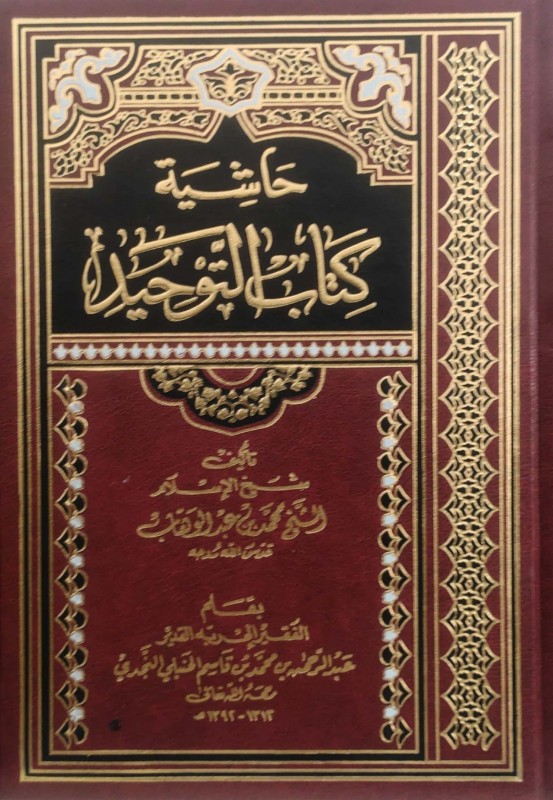 حاشية
كتاب التوحيد
تأليف
شيخ الإسلام
الشيخ محمد بن عبد الوهاب
قدس الله روحه
بقلم
الفقير إلى ربه القدير
عبد الرحمن بن محمد بن قاسم الحنبلي النجدي
رحمه الله تعالى
١٣١٢ - ١٣٩٢هـ